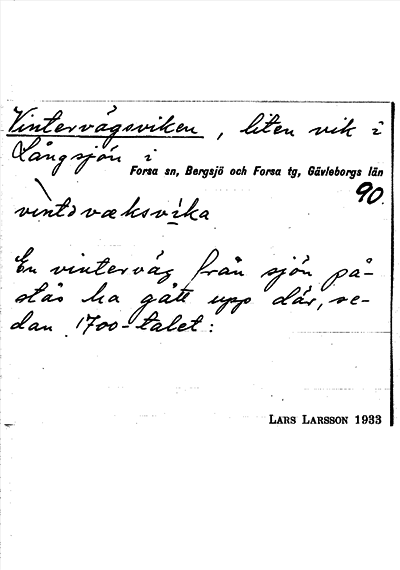 Vintervägsviken, liten vik i
Långsjön i
Forsa sn, Bergsjö och Forsa tg, Gävleborgs län
90.
vìntəvæksvika
En vinterväg från sjön på-
stås ha gått upp där, se-
dan 1700-talet:
LARS LARSSON 1933